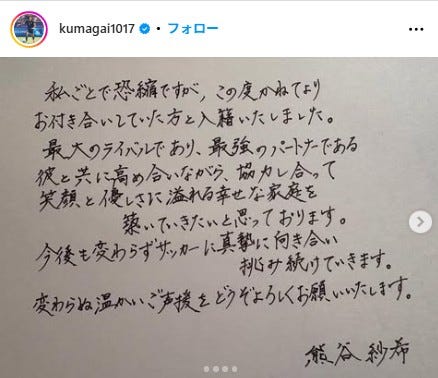 kumagai1017 • フォロー
私ごとで恐縮ですが、この度かねてより
お付き合いしていた方と入籍いたしました。
最大のライバルであり、最強のパートナーである
彼と共に高め合いながら、協力し合って
笑顔と優しさに溢れる幸せな家庭を
築いていきたいと思っております。
今後も変わらずサッカーに真摯に向き合い
挑み続けていきます。
変わらぬ温かいご声援をどうぞよろしくお願いいたします。
熊谷紗希